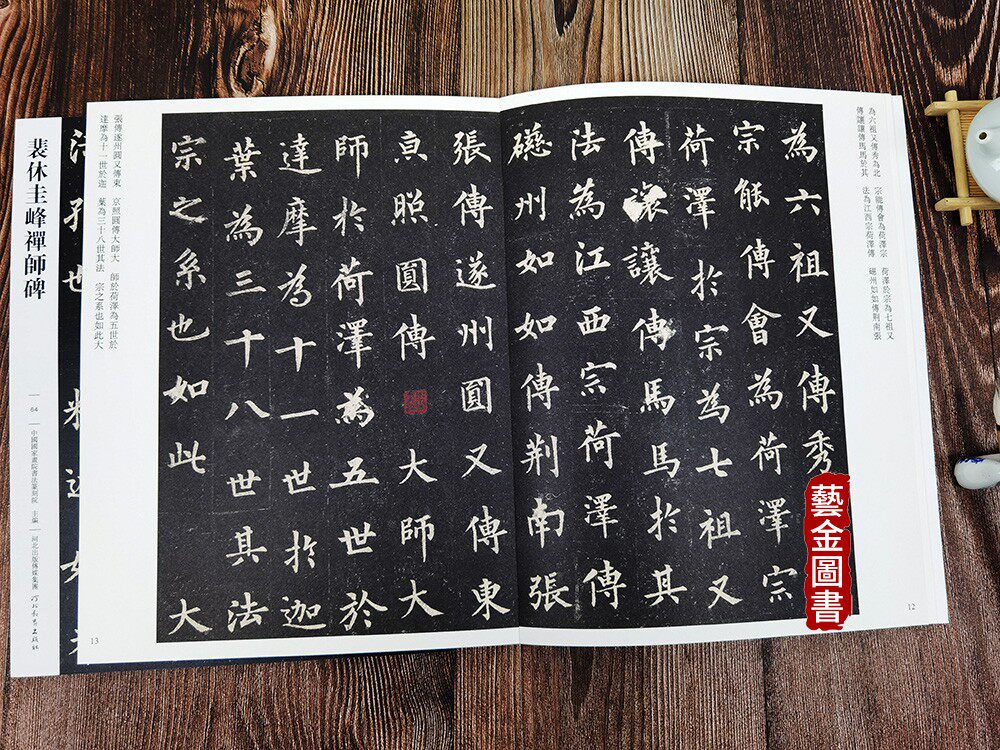 為六祖又傳秀為北 宗能傳會為荷澤宗 荷澤於宗為七祖又
傳讓讓傳馬馬於其 法為江西宗荷澤傳 磁州如如傳荊南張
為六祖又傳秀
宗能傳會為荷澤宗
荷澤於宗為七祖又
傳讓讓傳馬馬於其
法為江西宗荷澤傳
礠州如如傳荊南張
12
藝金圖書
張傳遂州圓又傳東
京照圓傳大師大
師於荷澤為五世於
達摩為十一世於迦
葉為三十八世其法
宗之系也如此 大
張傳遂州圓又傳東 京照圓傳大師大 師於荷澤為五世於
達摩為十一世於迦 葉為三十八世其法 宗之系也如此大
13
裴休圭峰禪師碑
64
中國國家畫院書法篆刻院 主編
河北出版傳媒集團 河北教育出版社